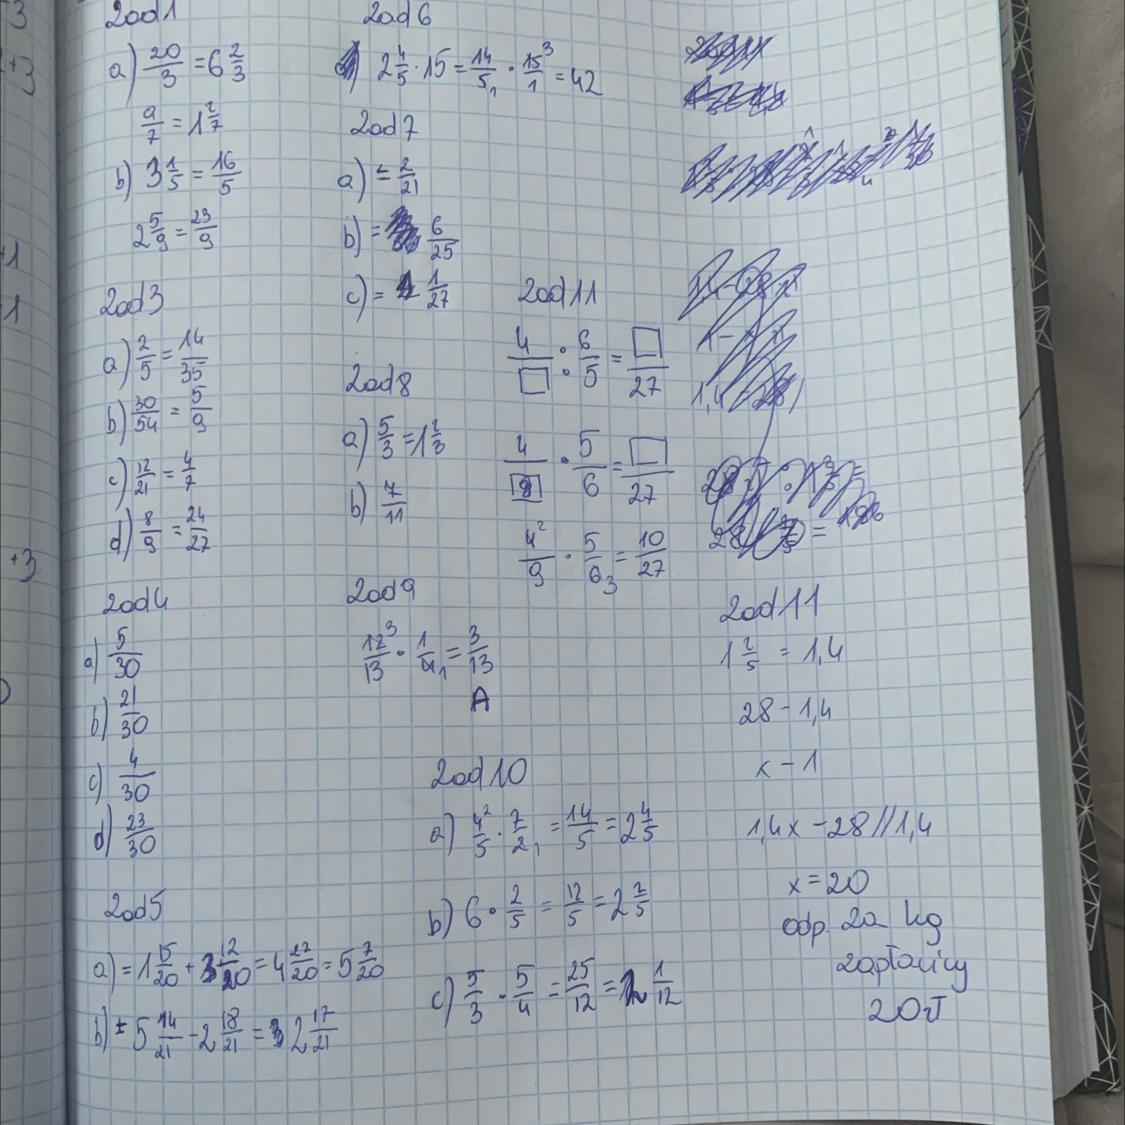 Zad1
a) 20/3 = 6 2/3
9/7 = 1 2/7
b) 3 1/5 = 16/5
2 5/9 = 23/9
Zad3
a) 2/5 = 14/35
b) 30/54 = 5/9
c) 12/21 = 4/7
d) 8/9 = 24/27
Zad4
a) 5/30
b) 21/30
c) 4/30
d) 23/30
Zad5
a) = 1 15/20 + 3 12/20 = 4 27/20 = 5 7/20
b) = 5 14/21 - 2 18/21 = 2 17/21
Zad6
2 4/5 · 15 = 14/5 1 · 15 3/1 = 42
Zad7
a) = 2/21
b) = 6/25
c) = 1/27
Zad8
a) 5/3 = 1 2/3
b) 7/11
Zad9
12 3/13 · 1/4 1 = 3/13
A
Zad10
a) 4 2/5 · 7/2 1 = 14/5 = 2 4/5
b) 6 · 2/5 = 12/5 = 2 2/5
c) 5/3 · 5/4 = 25/12 = 2 1/12
Zad11
4/□ : 6/5 = □/27
4/9 · 5/6 = □/27
4 2/9 · 5/6 3 = 10/27
Zad11
1 2/5 = 1,4
28 - 1,4
x - 1
1,4x - 28 // 1,4
x = 20
odp. Za kg
zapłacimy
20zł